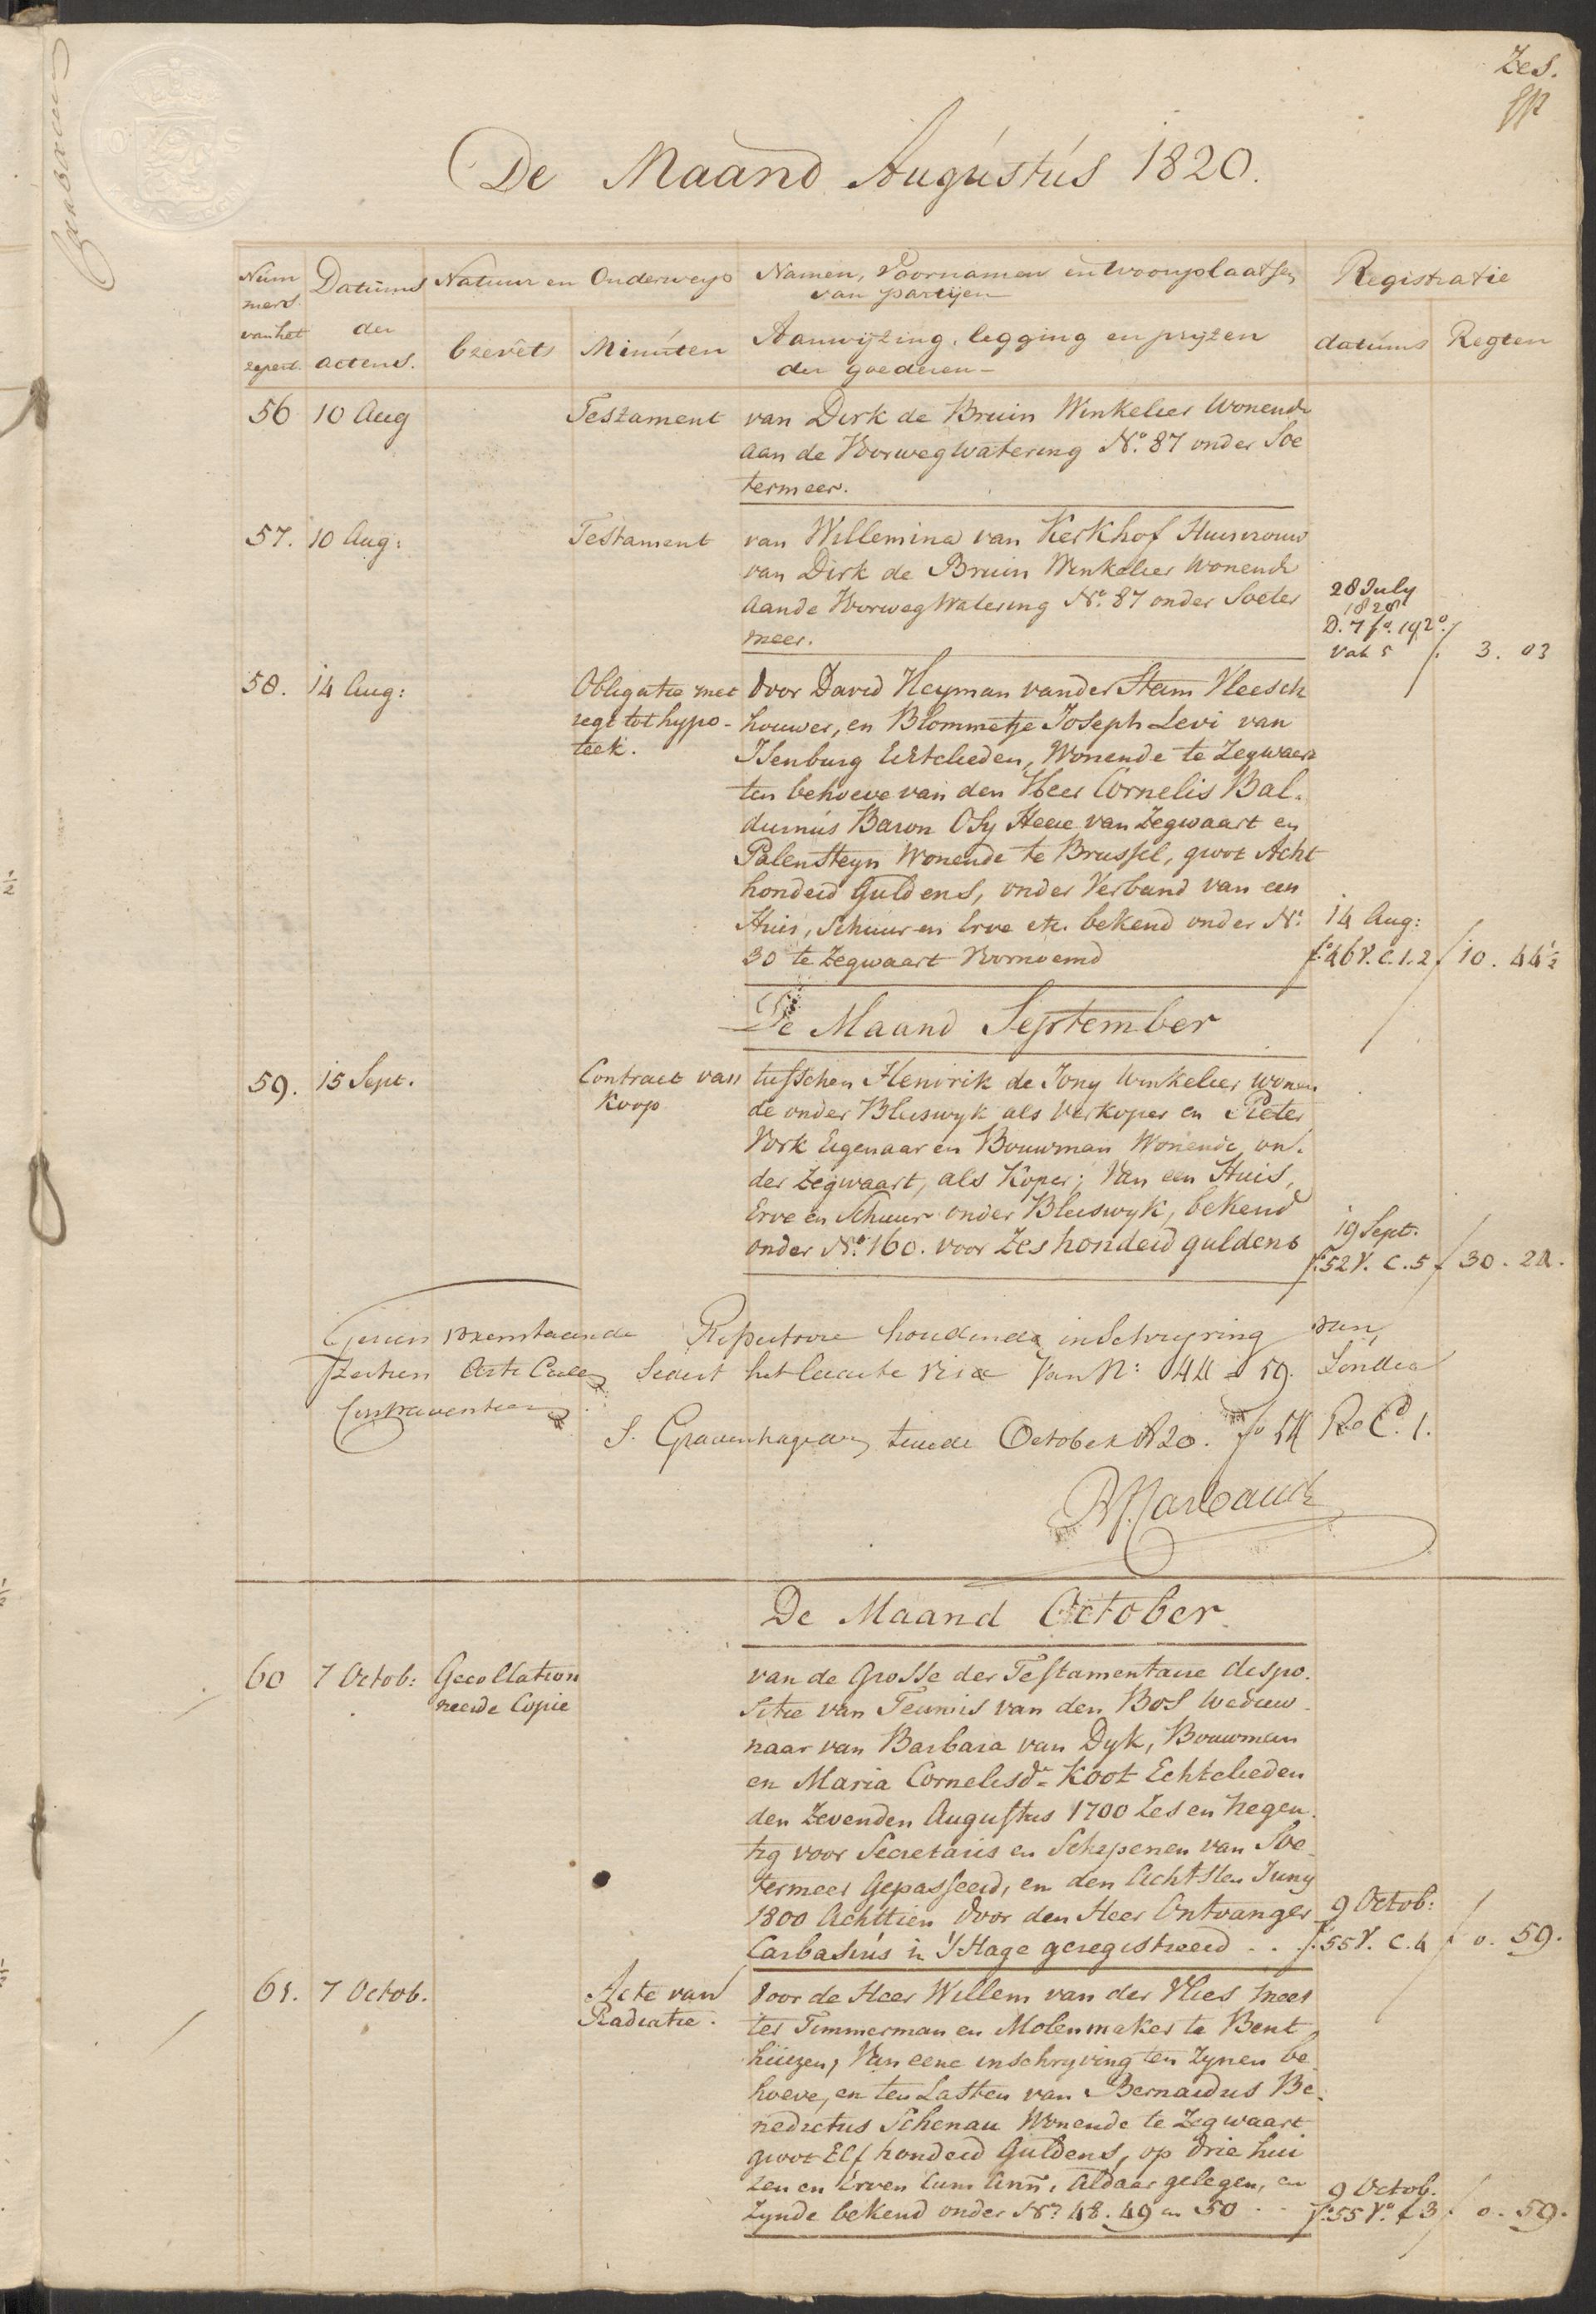 Zes.
De Maand Augústús 1820.
Núm Datums Natuur en Onderwerp Namen, Voornamen en Woonplaatsen Registratie
mers van partijen
van het der brevêts Minúten Aanwijzing, legging en prijzen datúms Regten
repert. actens. der goederen
56 10 Aug Testament van Dirk de Bruin Winkelier Wonende
aan de Voorweg Watering No. 87 onder Soe
termeer.
57. 10 Aug: Testament van Willemina van Kerkhof Huisvrouw
van Dirk de Bruin Winkelier Wonende
aande Voorweg Watering No. 87 onder Soeter
meer.
28 July
1828
D. 7 fo. 192o.
vak 5 f. 3. 03
58. 14 Aug: Obligatie met door David Heyman vander Stam Vleesch
regt tot hypo- houwer, en Blommetje Joseph Levi van
teek. Isenburg Echtelieden, Wonende te Zegwaart
ten behoeve van den Heer Cornelis Bal-
duinús Baron Osy Heere van Zegwaart en
Palensteyn Wonende te Brussel, groot Acht
honderd Guldens, onder Verband van een
Huis, Schuur en Erve etc. bekend onder No. 14 Aug:
30 te Zegwaart Voornoemd fo. 46 V. C. 1. 2 f 10. 44½
De Maand September
59. 15 Sept. Contract van tusschen Hendrik de Jong Winkelier wonen
Koop de onder Bleiswyk als Verkoper en Pieter
Vork Eigenaar en Bouwman Wonende on-
der Zegwaart, als Koper; Van een Huis,
Erve en Schuur onder Bleiswyk, bekend
onder No. 160. voor Zes honderd guldens 19 Sept.
fo. 52 V. C. 5 f 30. 24.
Gezien voorenstaande Repertoire houdende inschryving van
zestien Articulen sedert het laaste visa Van No: 44 a 59. Sonder
Contraventien
S. Gravenhage den tweede October 1820. fo 54 Ro Cd. 1.
De Maand October.
60 7 Octob: Gecollation van de Grosse der Testamentaire dispo-
neerde Copie sitie van Teunis van den Bos Weduw-
naar van Barbara van Dyk, Bouwman
en Maria Cornelisdr. Koot Echtelieden
den Zevenden Augustus 1700 Zes en Negen-
tig voor Secretaris en Schepenen van Soe-
termeer Gepasseerd, en den Achtsten Juny
1800 Achttien door den Heer Ontvanger 9 Octob:
Carbasiús in 's Hage geregistreerd . . fo. 55 V. C. 4 f 0. 59.
61. 7 Octob. Acte van door de Heer Willem van der Vlies Mees
Radiatie. ter Timmerman en Molenmaker te Bent
húizen, Van eene inschryving ten Zynen be-
hoeve, en ten Lasten van Bernardus Be-
nedictus Schenau Wonende te Zegwaart
groot Elf honderd Guldens, op drie hui
zen en Erven Cum Ann., Aldaar gelegen, en 9 Octob.
Zynde bekend onder No. 48. 49 en 50 . . fo. 55 Vo. C 3 f. 0. 59.